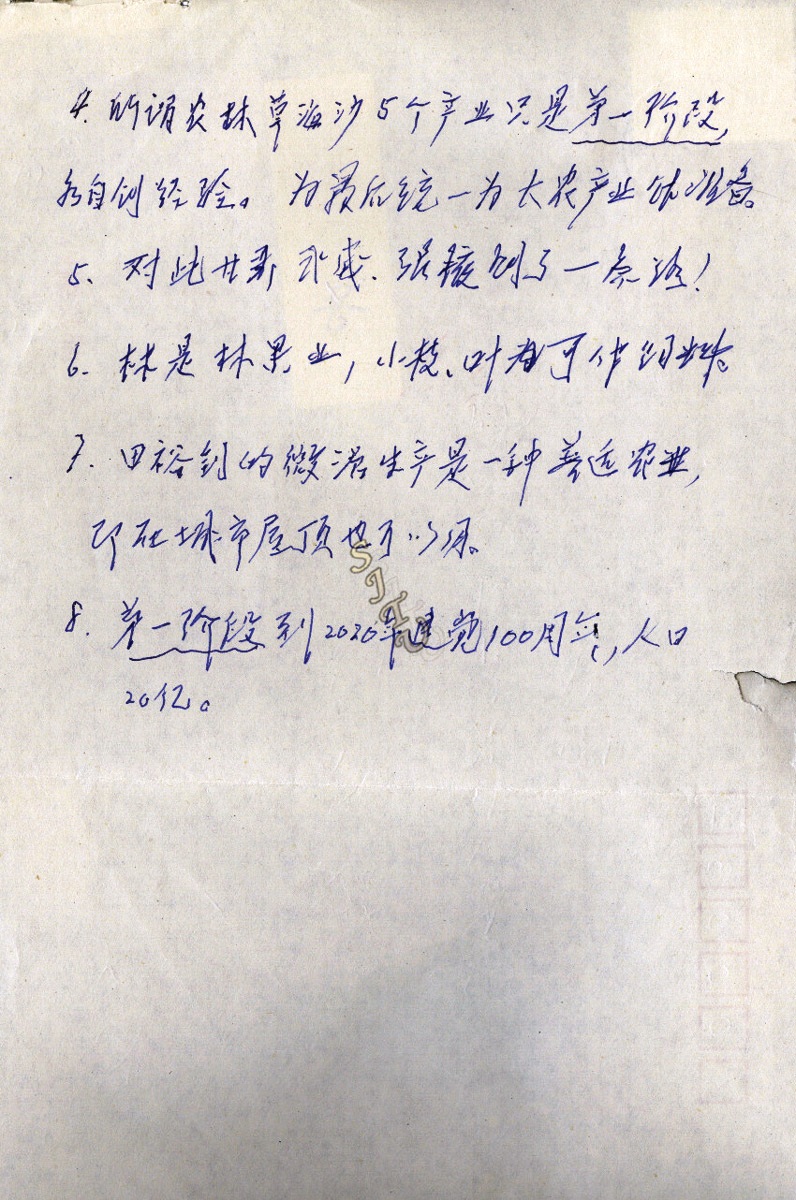 4. 所谓农林草海沙5个产业只是第一阶段,
各自创经验。为最后统一为大农产业作准备。
5. 对此甘肃武威、张掖创了一条路!
6. 林是林果业,小枝、叶都可作饲料。
7. 田裕钊的微藻生产是一种普适农业,
即在城市屋顶也可以用。
8. 第一阶段到2020年建党100周年,人口
20亿。
SJTU